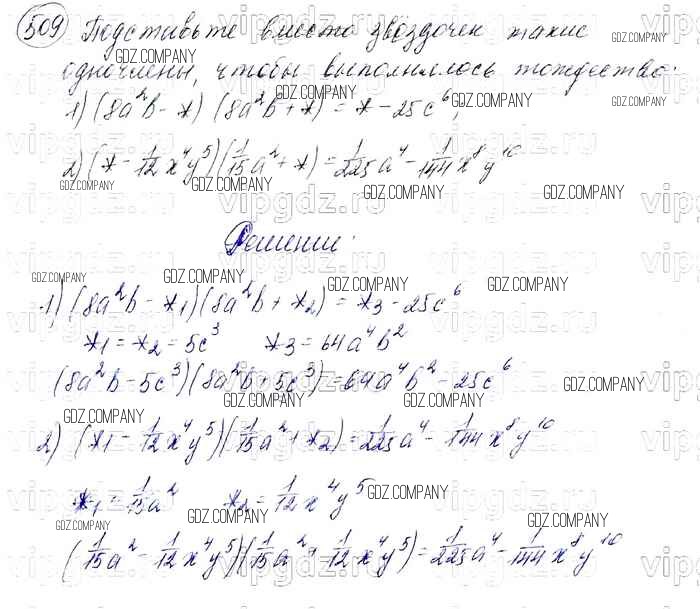 509 Подставьте вместо звёздочек такие
одночлены, чтобы выполнялось тождество:
1) (8a²b - *) (8a²b + *) = * - 25c⁶;
2) (* - 1/12 x⁴y⁵)(1/15 a² + *) = 1/225 a⁴ - 1/144 x⁸y¹⁰
Решение:
1) (8a²b - *₁)(8a²b + *₂) = *₃ - 25c⁶
*₁ = *₂ = 5c³ *₃ = 64a⁴b²
(8a²b - 5c³)(8a²b + 5c³) = 64a⁴b² - 25c⁶
2) (*₁ - 1/12 x⁴y⁵)(1/15 a² + *₂) = 1/225 a⁴ - 1/144 x⁸y¹⁰
*₁ = 1/15 a² *₂ = 1/12 x⁴y⁵
(1/15 a² - 1/12 x⁴y⁵)(1/15 a² + 1/12 x⁴y⁵) = 1/225 a⁴ - 1/144 x⁸y¹⁰
GDZ.COMPANY
vipgdz.ru